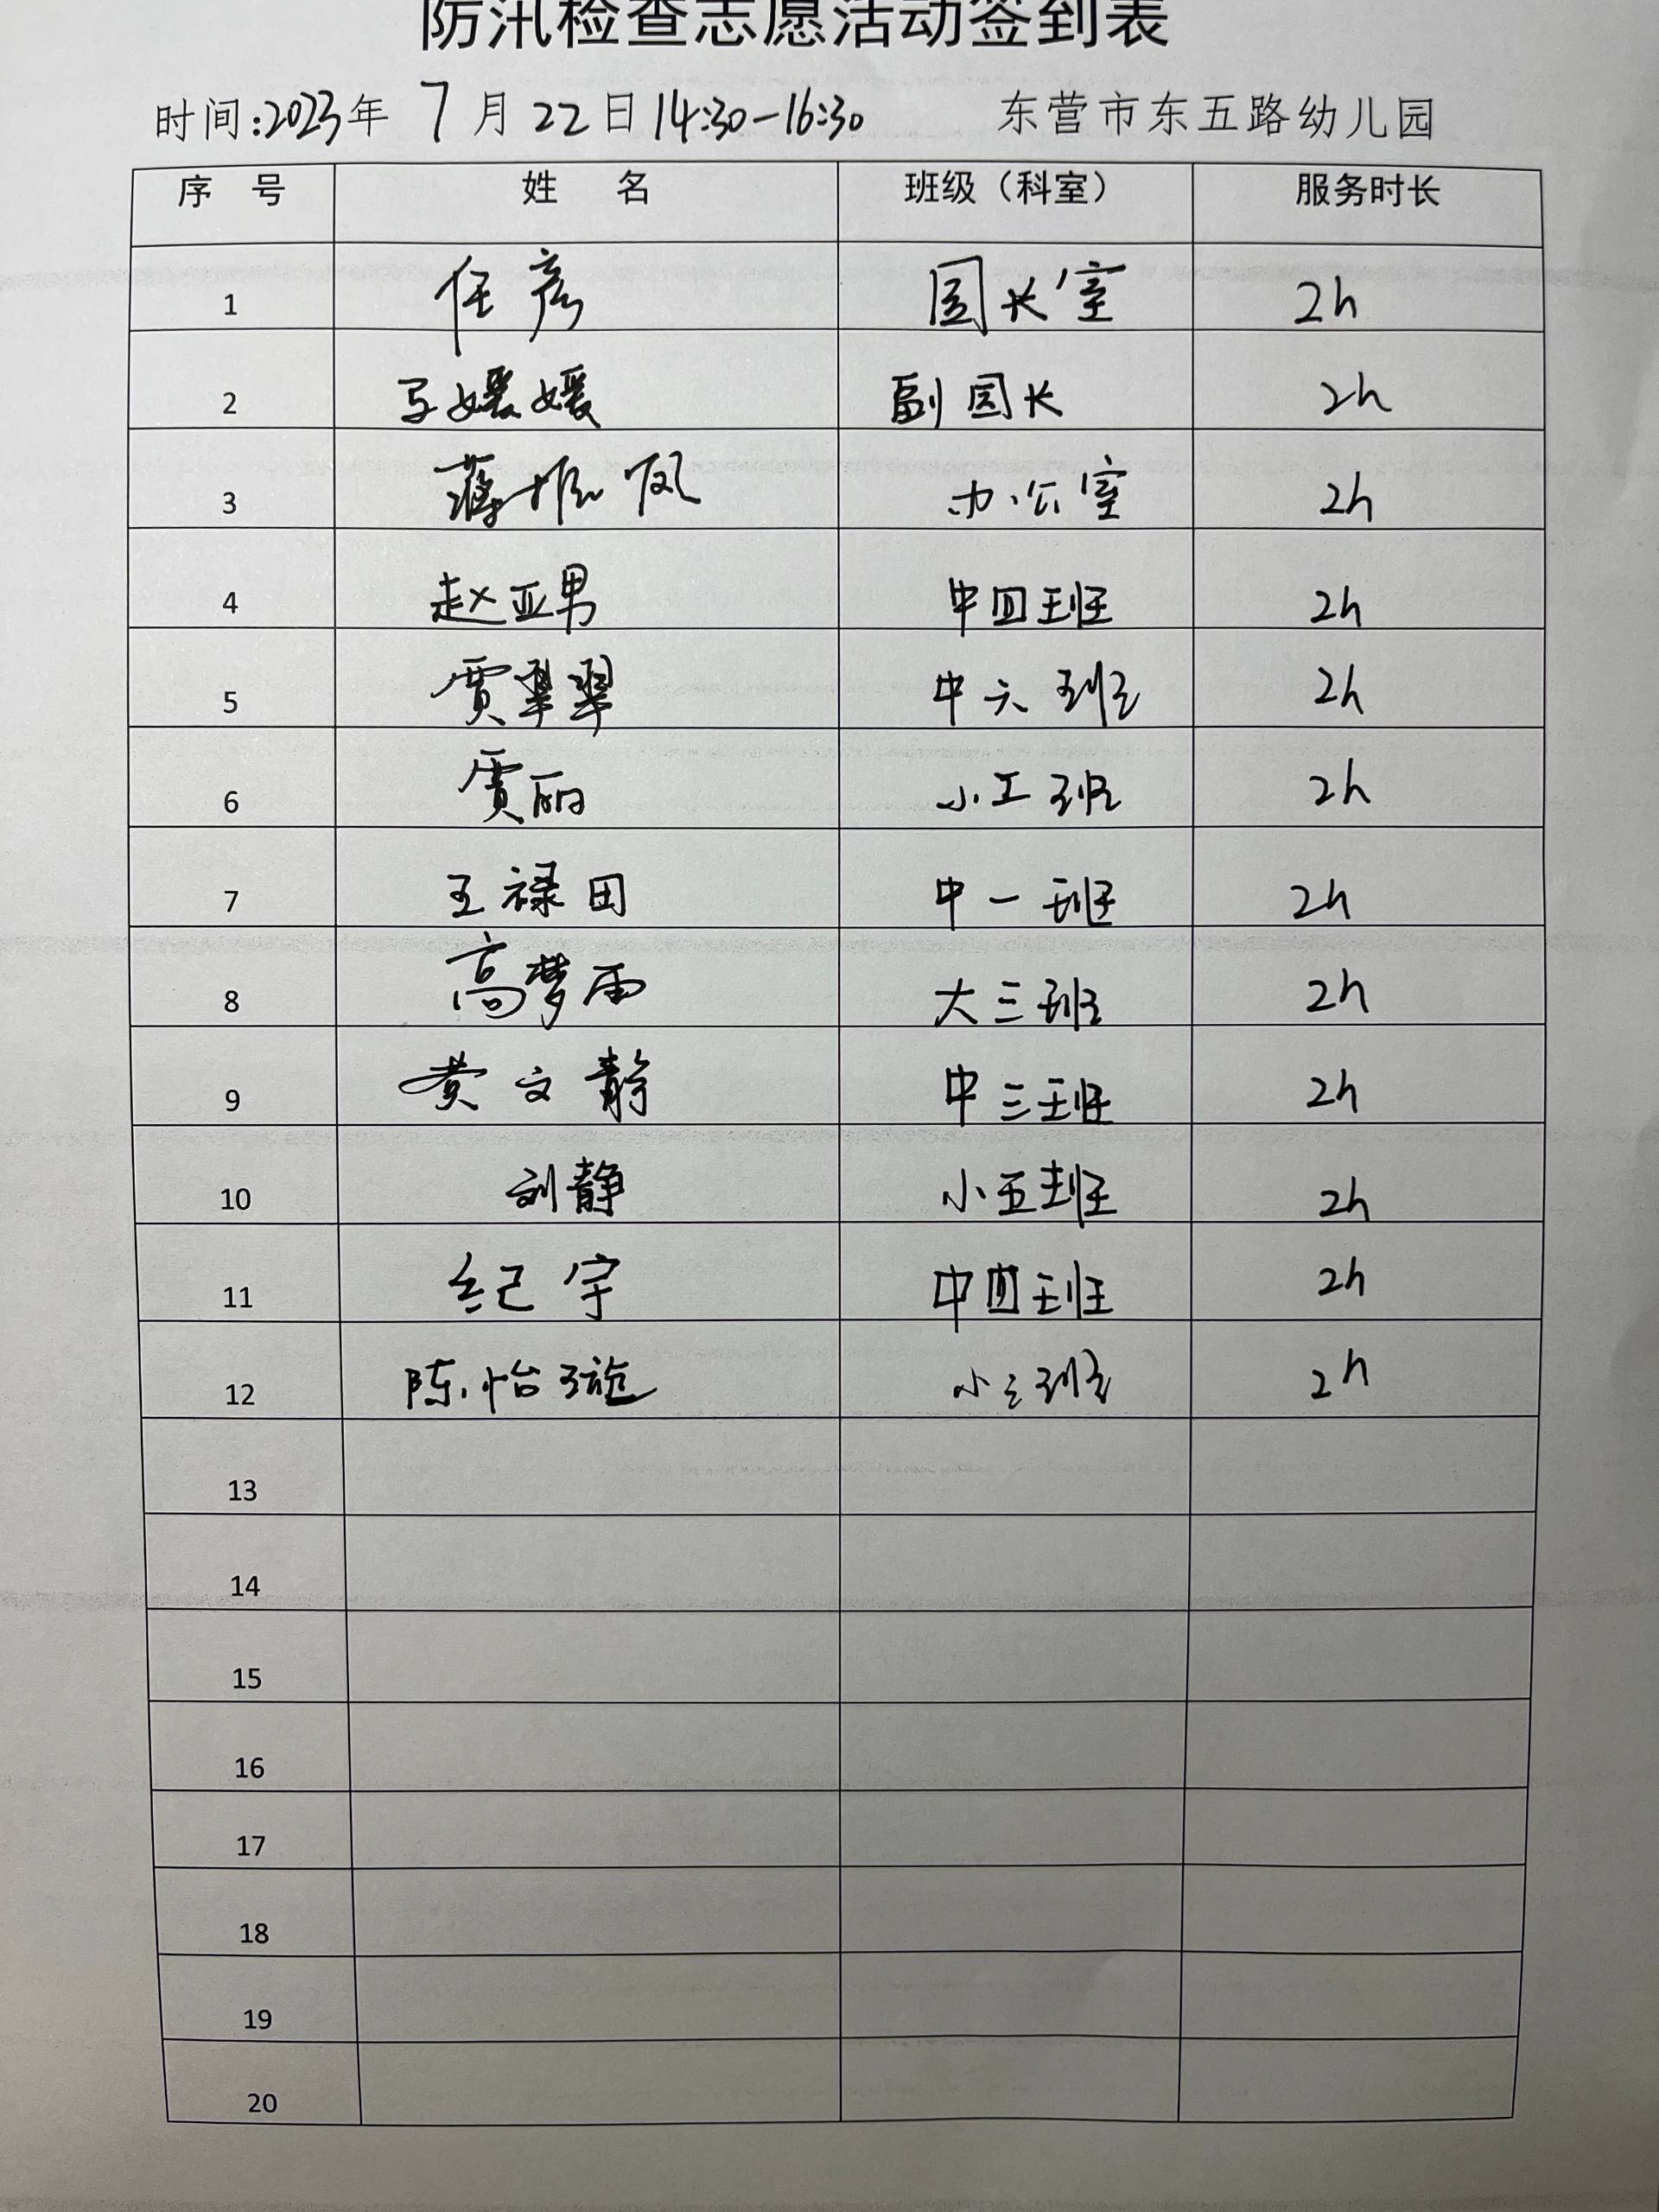 防汛检查志愿活动签到表
时间:2023年 7月22日14:30-16:30 东营市东五路幼儿园
序 号 姓 名 班级（科室） 服务时长
1 任彦 园长室 2h
2 媛媛 副园长 2h
3 薄 凤 办公室 2h
4 赵亚男 中四班 2h
5 贾翠翠 中六班 2h
6 贾丽 小 班 2h
7 王禄田 中一班 2h
8 高梦雨 大三班 2h
9 黄文静 中三班 2h
10 刘静 小五班 2h
11 纪宇 中四班 2h
12 陈怡璇 小三班 2h
13
14
15
16
17
18
19
20